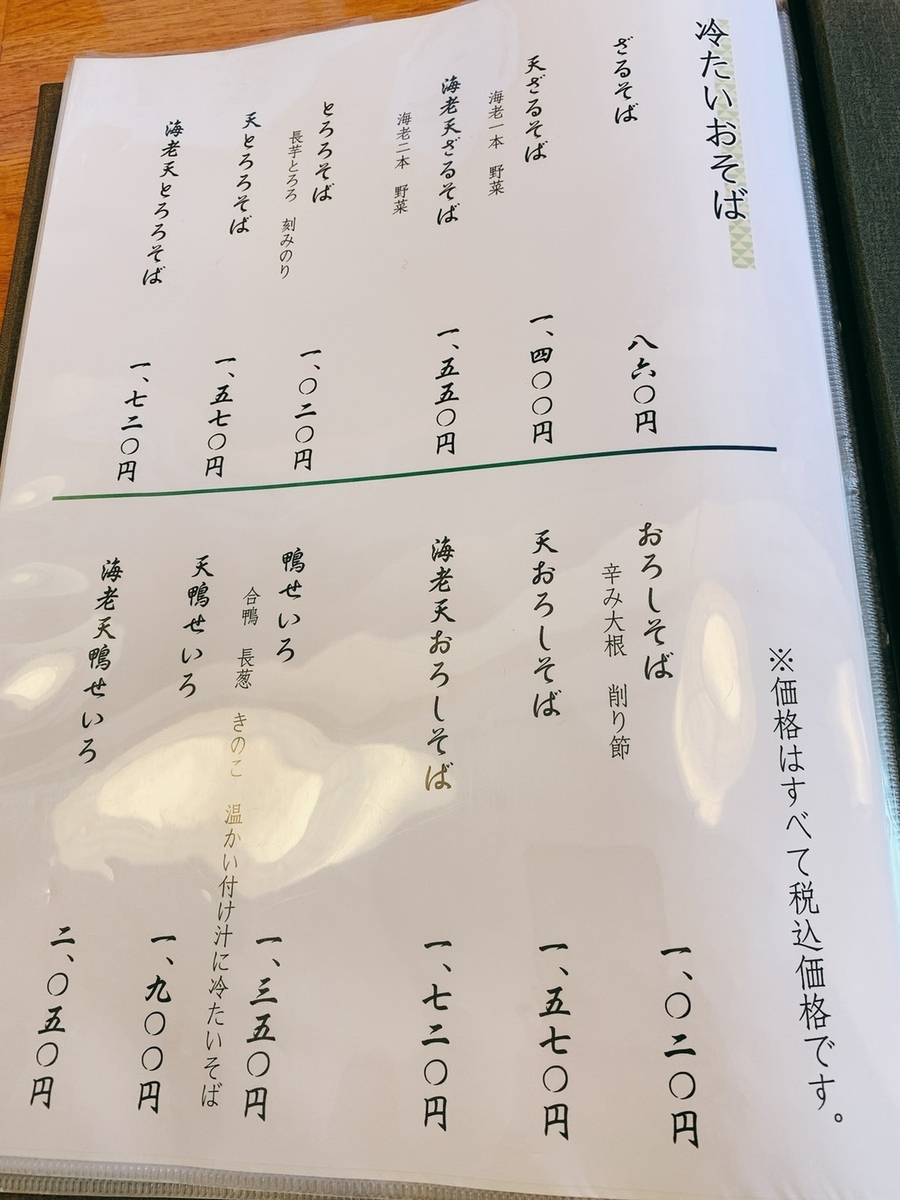 冷たいおそば
ざるそば
八六〇円
天ざるそば
海老一本 野菜
一、四〇〇円
海老天ざるそば
海老二本 野菜
一、五五〇円
とろろそば
長芋とろろ 刻みのり
一、〇二〇円
天とろろそば
一、五七〇円
海老天とろろそば
一、七二〇円
※価格はすべて税込価格です。
おろしそば
辛み大根 削り節
一、〇二〇円
天おろしそば
一、五七〇円
海老天おろしそば
一、七二〇円
鴨せいろ
合鴨 長葱 きのこ 温かい付け汁に冷たいそば
一、三五〇円
天鴨せいろ
一、九〇〇円
海老天鴨せいろ
二、〇五〇円